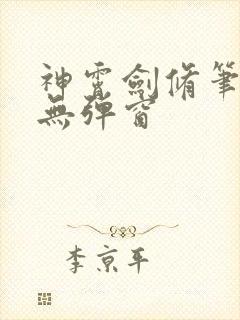 神霄劍脩筆
無彈窗
李京平